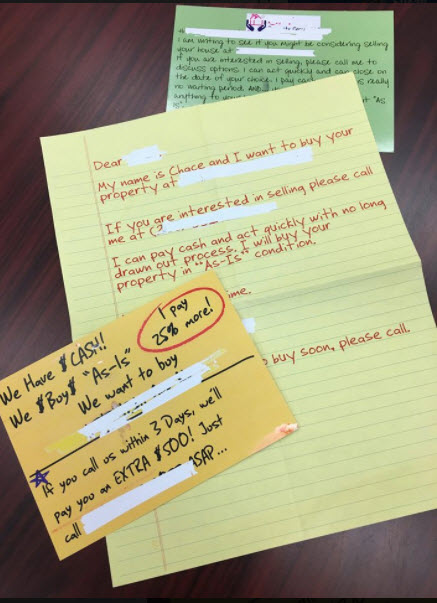 I am writing to see if you might be considering selling
your house at
If you are interested in selling, please call me to
discuss options. I can act quickly and can close on
the date of your choice. I pay cash
really
no waiting period AND
anything to your "As
Dear
My name is Chace and I want to buy your
property at
If you are interested in selling please call
me at
I can pay cash and act quickly with no long
drawn out process. I will buy your
property in "As-Is" condition.
time.
buy soon, please call.
I pay
25% more!
We Have $CASH!!
We $Buy$ "As-Is"
We want to buy
If you call us within 3 Days, we'll
pay you an EXTRA $500! Just
call ASAP...